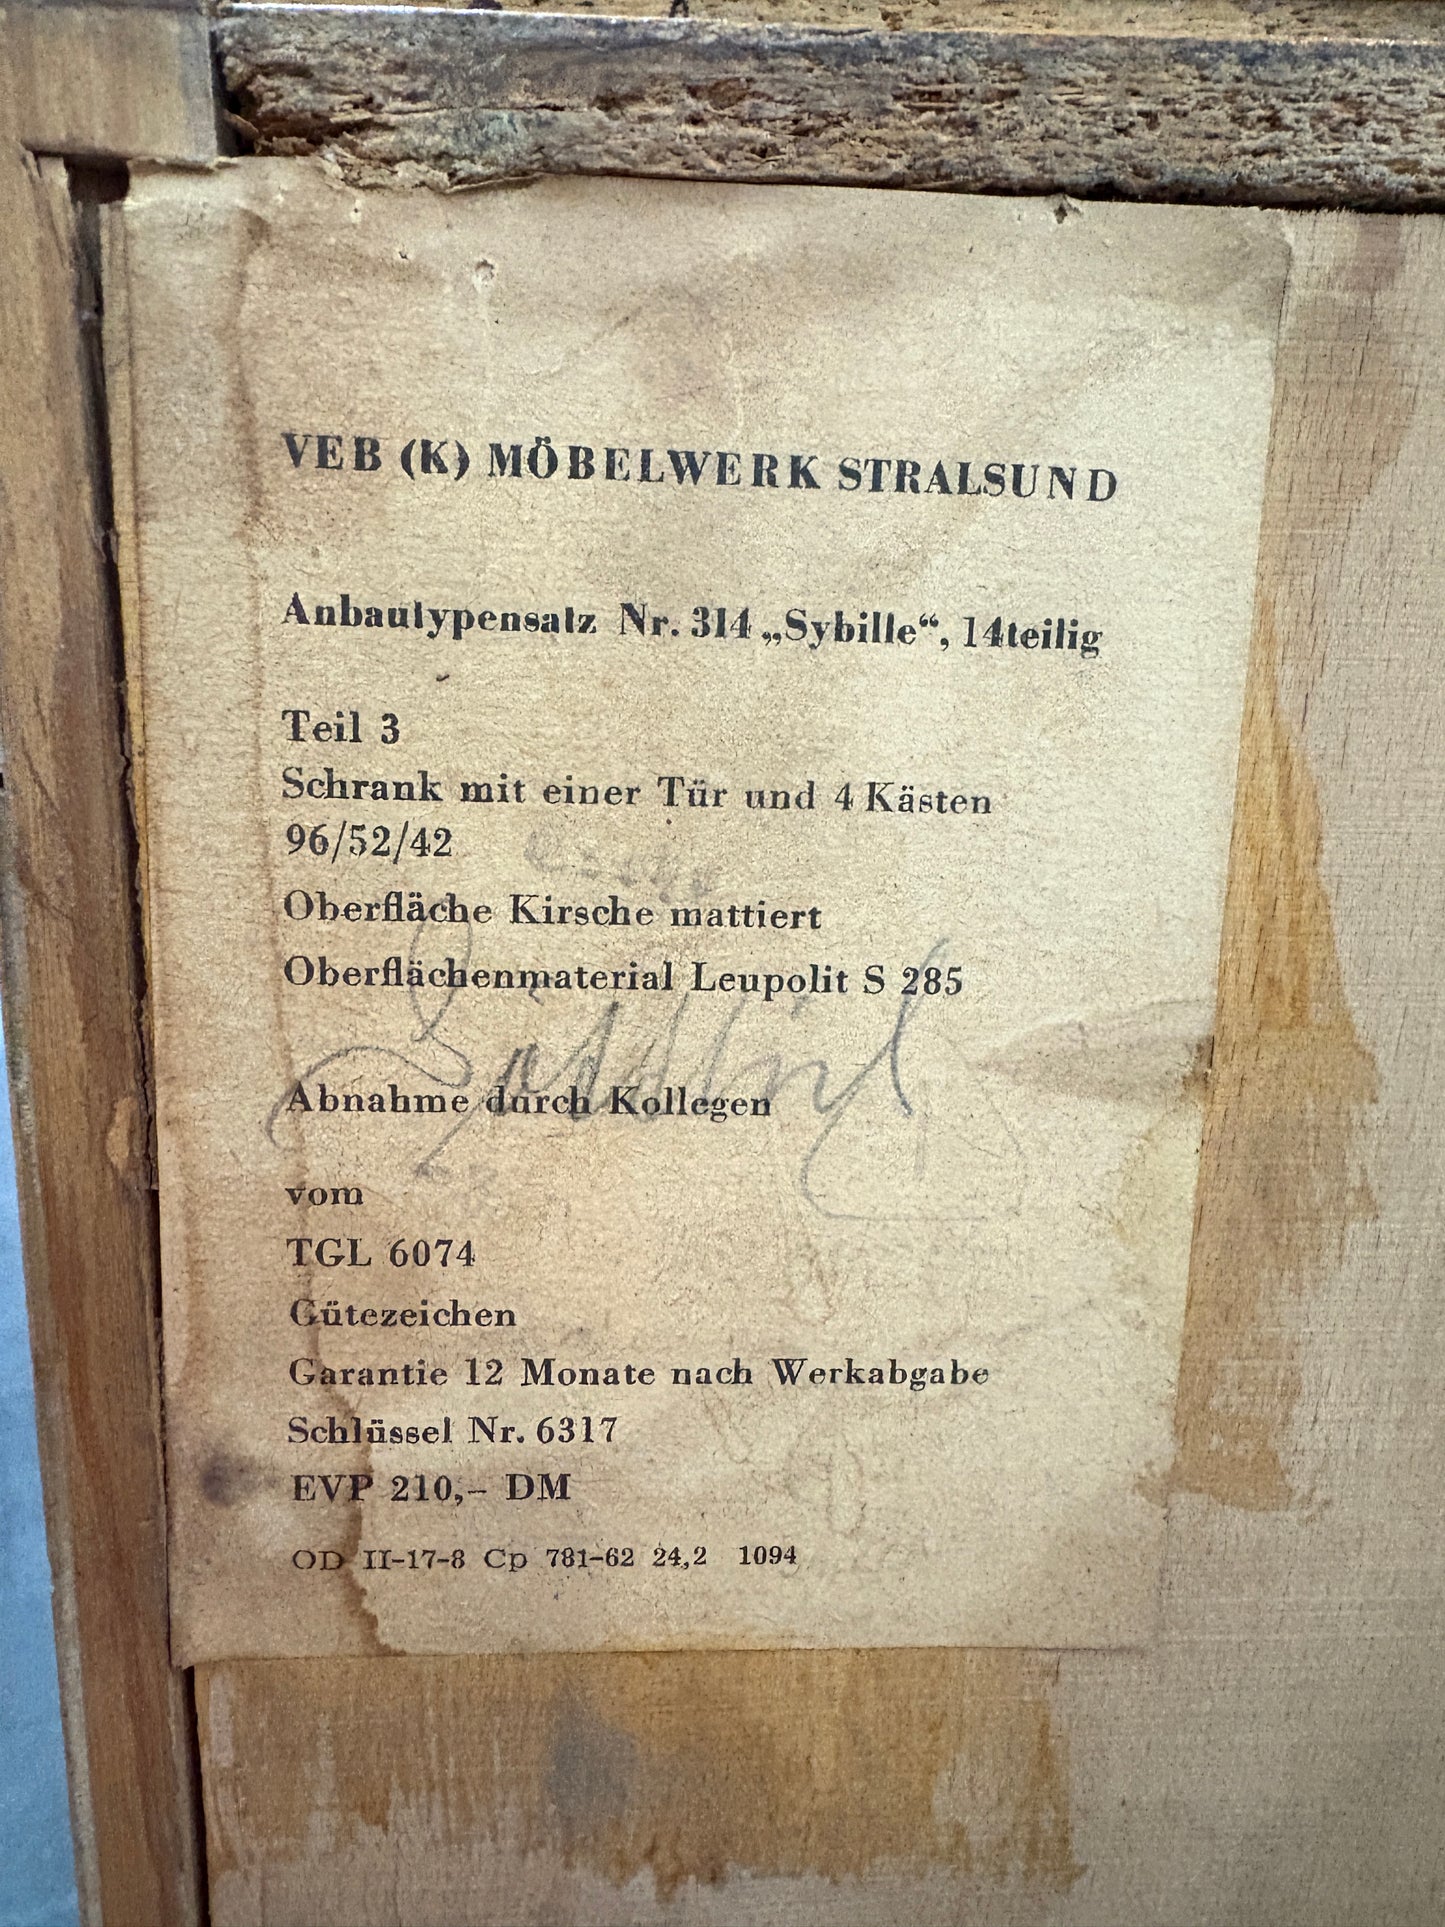 VEB (K) MÖBELWERK STRALSUND
Anbautypensatz Nr. 314 „Sybille“, 14teilig
Teil 3
Schrank mit einer Tür und 4 Kästen
96/52/42
Oberfläche Kirsche mattiert
Oberflächenmaterial Leupolit S 285
Abnahme durch Kollegen
vom
TGL 6074
Gütezeichen
Garantie 12 Monate nach Werkabgabe
Schlüssel Nr. 6317
EVP 210,– DM
OD II-17-8 Cp 781-62 24,2 1094